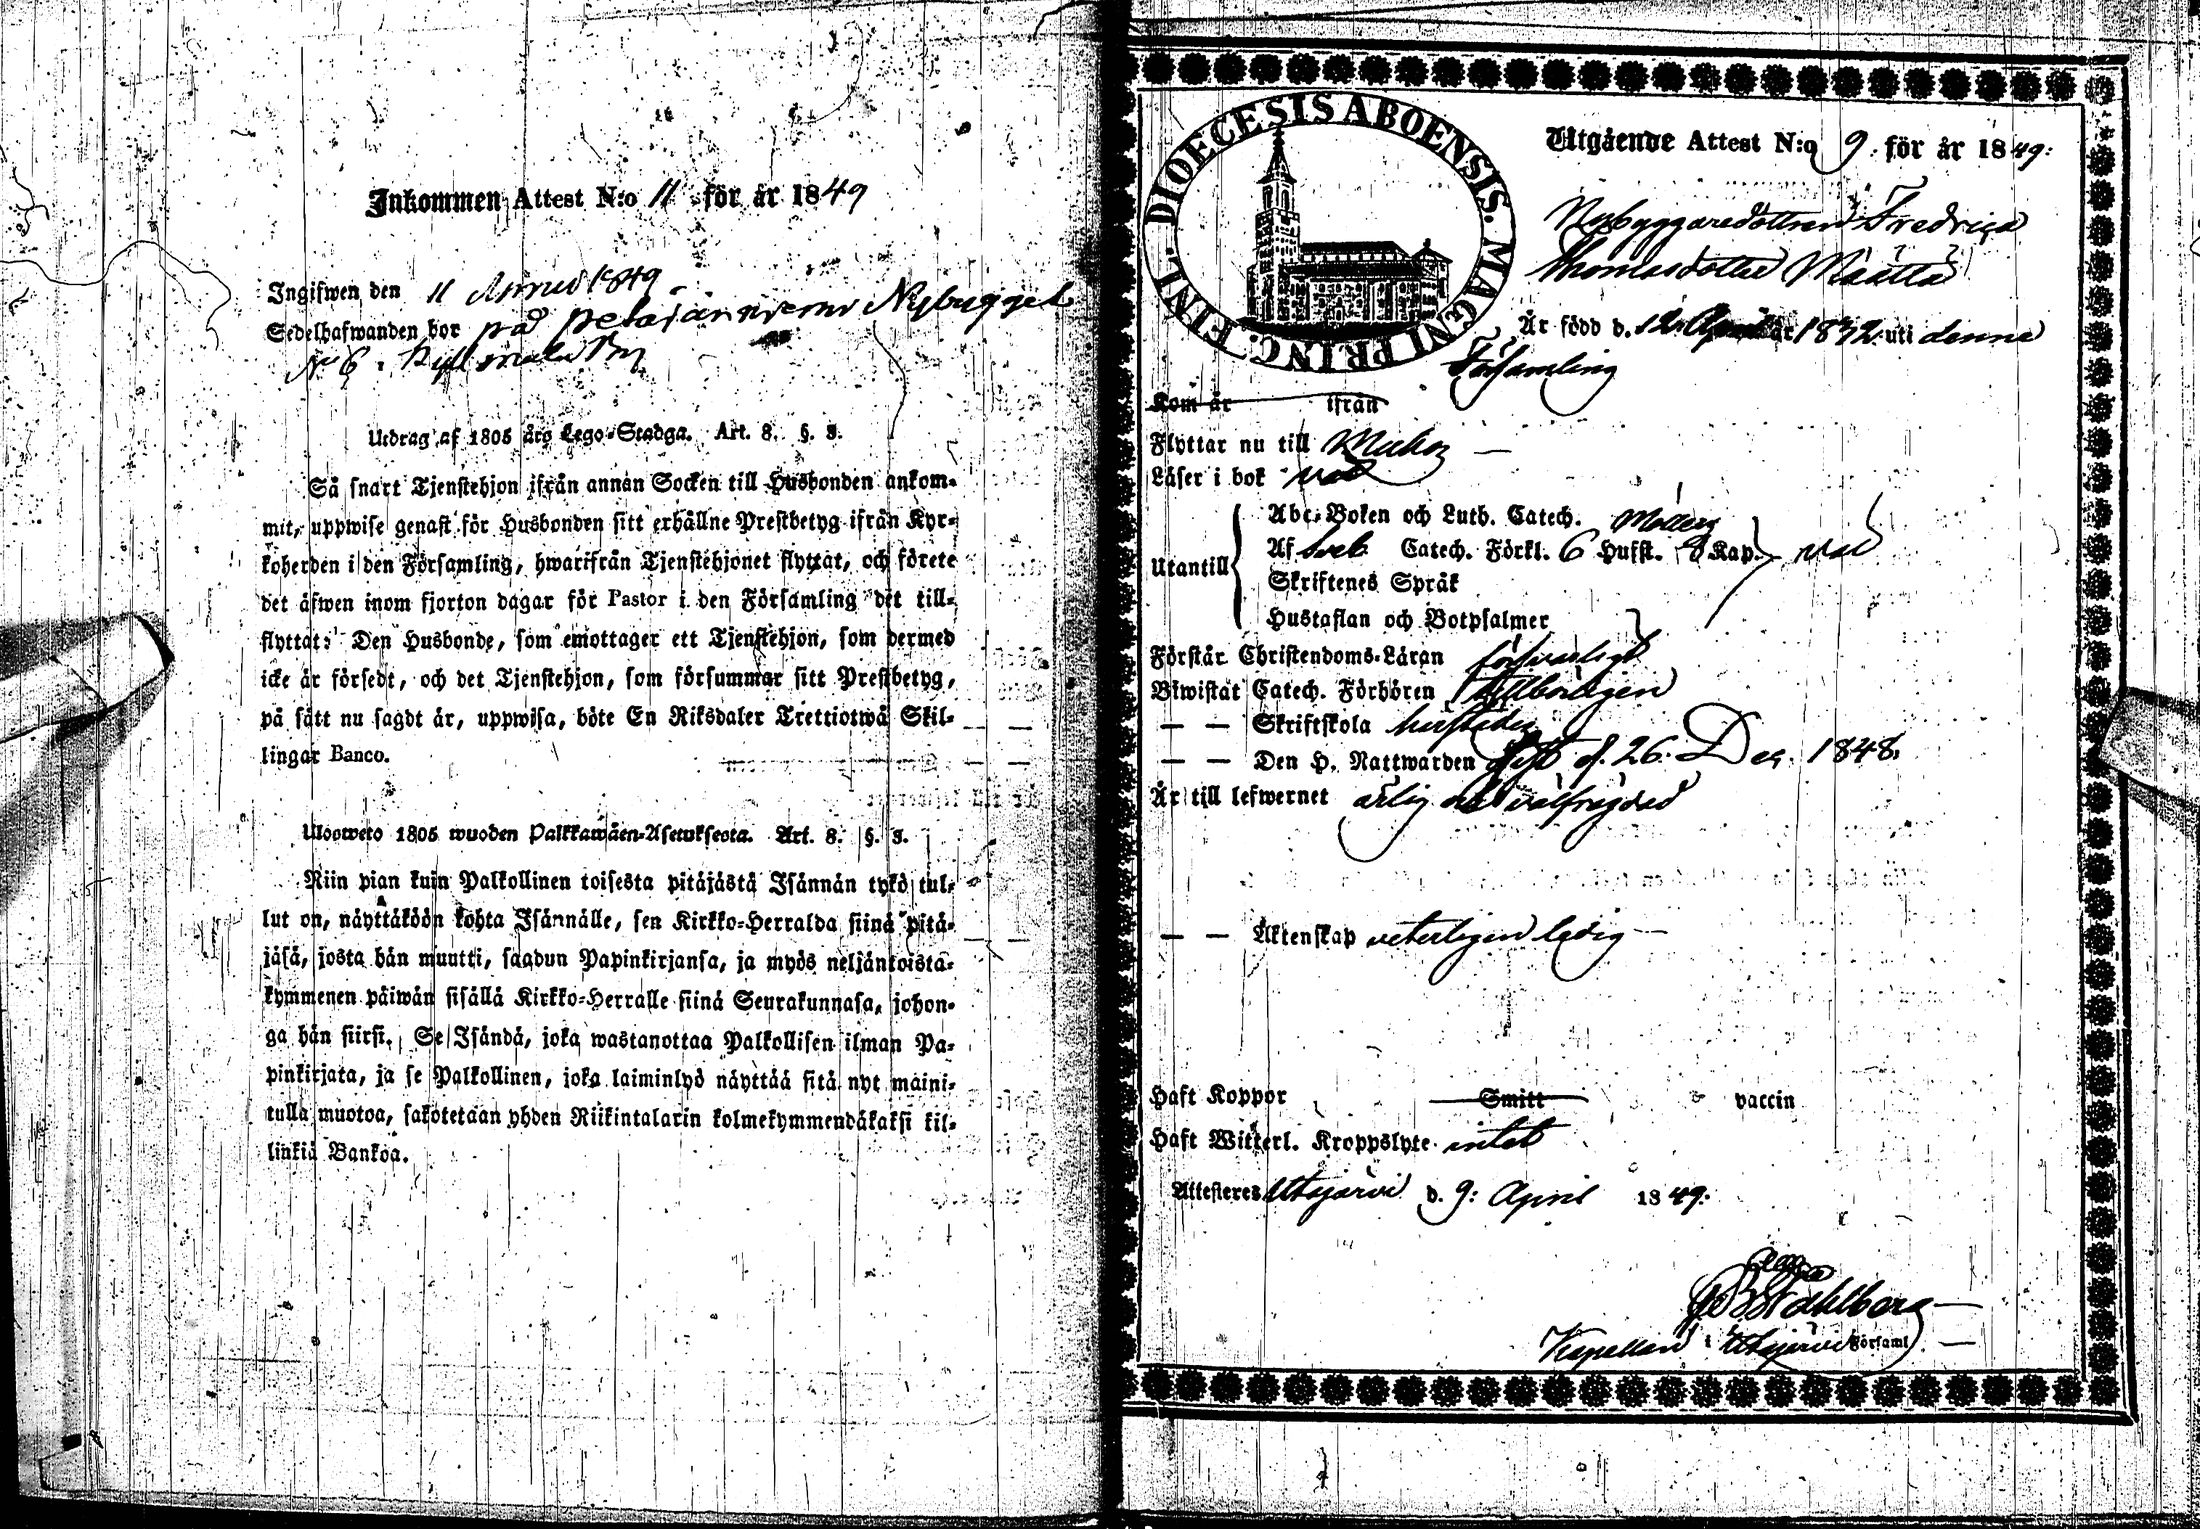 Inkommen Attest N:o 11 för år 1849
Ingifwen den 11 1849
Sedelhafwanden bor på Nybygget
N 6. Kylmälä By
Utdrag af 1805 års Lego-Stadga. Art. 8. §. 3.
Så snart Tjenstehjon ifrån annan Socken till Husbonden ankom-
mit, uppwise genast för Husbonden sitt erhållne Prestbetyg ifrån Kyr-
koherden i den Församling, hwarifrån Tjenstehjonet flyttat, och förete
det äfwen inom fjorton dagar för Pastor i den Församling det till-
flyttat: Den Husbonde, som emottager ett Tjenstehjon, som dermed
icke är försedt, och det Tjenstehjon, som försummar sitt Prestbetyg,
på sätt nu sagdt är, uppwisa, böte En Riksdaler Trettiotwå Skil-
lingar Banco.
Ulosweto 1805 wuoden Palkkawäen-Asetuksesta. Art. 8. §. 3.
Niin pian kuin Palkollinen toisesta pitäjästä Isännän tykö tul-
lut on, näyttäköön kohta Isännälle, sen Kirkko-Herralda siinä pitä-
jäsä, josta hän muutti, saadun Papinkirjansa, ja myös neljäntoista-
kymmenen päiwän sisällä Kirkko-Herralle siinä Seurakunnasa, johon-
ga hän siirsi. Se Isändä, joka wastanottaa Palkollisen ilman Pa-
pinkirjata, ja se Palkollinen, joka laiminlyö näyttää sitä nyt maini-
tulla muotoa, sakotetaan yhden Riikintalarin kolmekymmendäkaksi kil-
linkiä Bankoa.
DIOECESIS ABOENSIS. MAGNI PRINC. FINL.
Utgående Attest N:o 9. för år 1849.
Nybyggaredottren Fredrica
Thomasdotter Määttä
Är född d. 12 April år 1832 uti denna
Församling
Kom år ifrån
Flyttar nu till Muhos
Läser i bok
Utantill
Abc-Boken och Luth. Catech.
Af Sveb. Catech. Förkl. 6 Hufst. 8 Kap.
Skriftenes Språk
Hustaflan och Botpsalmer
Förstår Christendoms-Läran försvarligt
Biwistat Catech. Förhören tillbörligen
— — Skriftskola härstädes
— — Den H. Nattwarden sist d. 26. Dec. 1848.
Är till lefwernet ärlig och välfrejdad
— — Äktenskap veterligen ledig
Haft Koppor Smitt vaccin
Haft Witterl. Kroppslyte intet
Attesteres Utajärvi d. 9: April 1849.
Wahlberg
Kapellan i Utajärvi Församl.